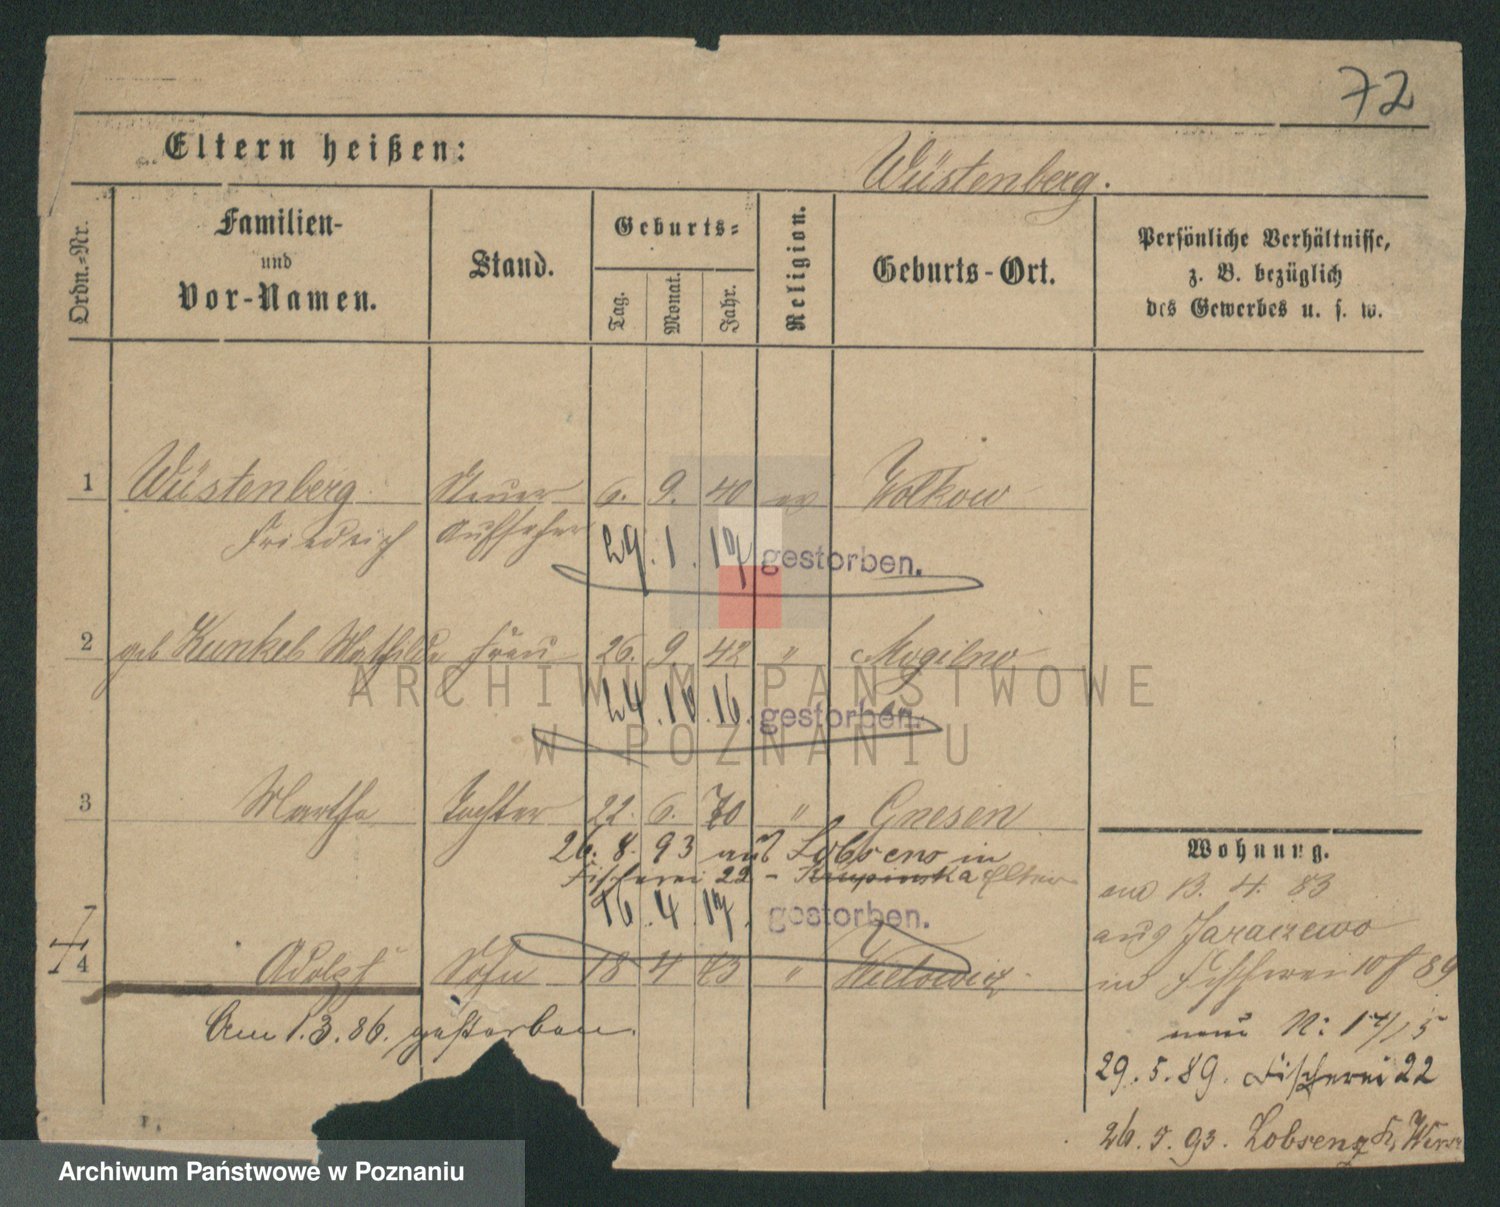 72
Eltern heißen:
Wüstenberg.
Ordn.-Nr.
Familien-
und
Vor-Namen.
Stand.
Geburts-
Tag.
Monat.
Jahr.
Religion.
Geburts-Ort.
Persönliche Verhältnisse,
z. B. bezüglich
des Gewerbes u. s. w.
1 Wüstenberg Steuer 6. 9. 40 ev Wolkow
Friedrich Aufseher
29. 1. 17 gestorben.
2 geb Kunkel Mathilde Frau 26. 9. 42 " Mogilno
ARCHIWUM PAŃSTWOWE
24. 10. 16. gestorben.
W POZNANIU
3 Martha Tochter 22. 6. 70 " Gnesen
26. 8. 93 aus Lobsens in
Fischerei 22 - Krupinska Eltern
16. 4. 17. gestorben.
4 Adolph Sohn 18 4 73 "
Am 1.3.86. gestorben.
Wohnung.
am 13. 4. 83
aus Jaraczewo
in Fischerei 10 f 89
neue N: 17/15
29.5.89. Fischerei 22
26.5.93. Lobsens
Archiwum Państwowe w Poznaniu